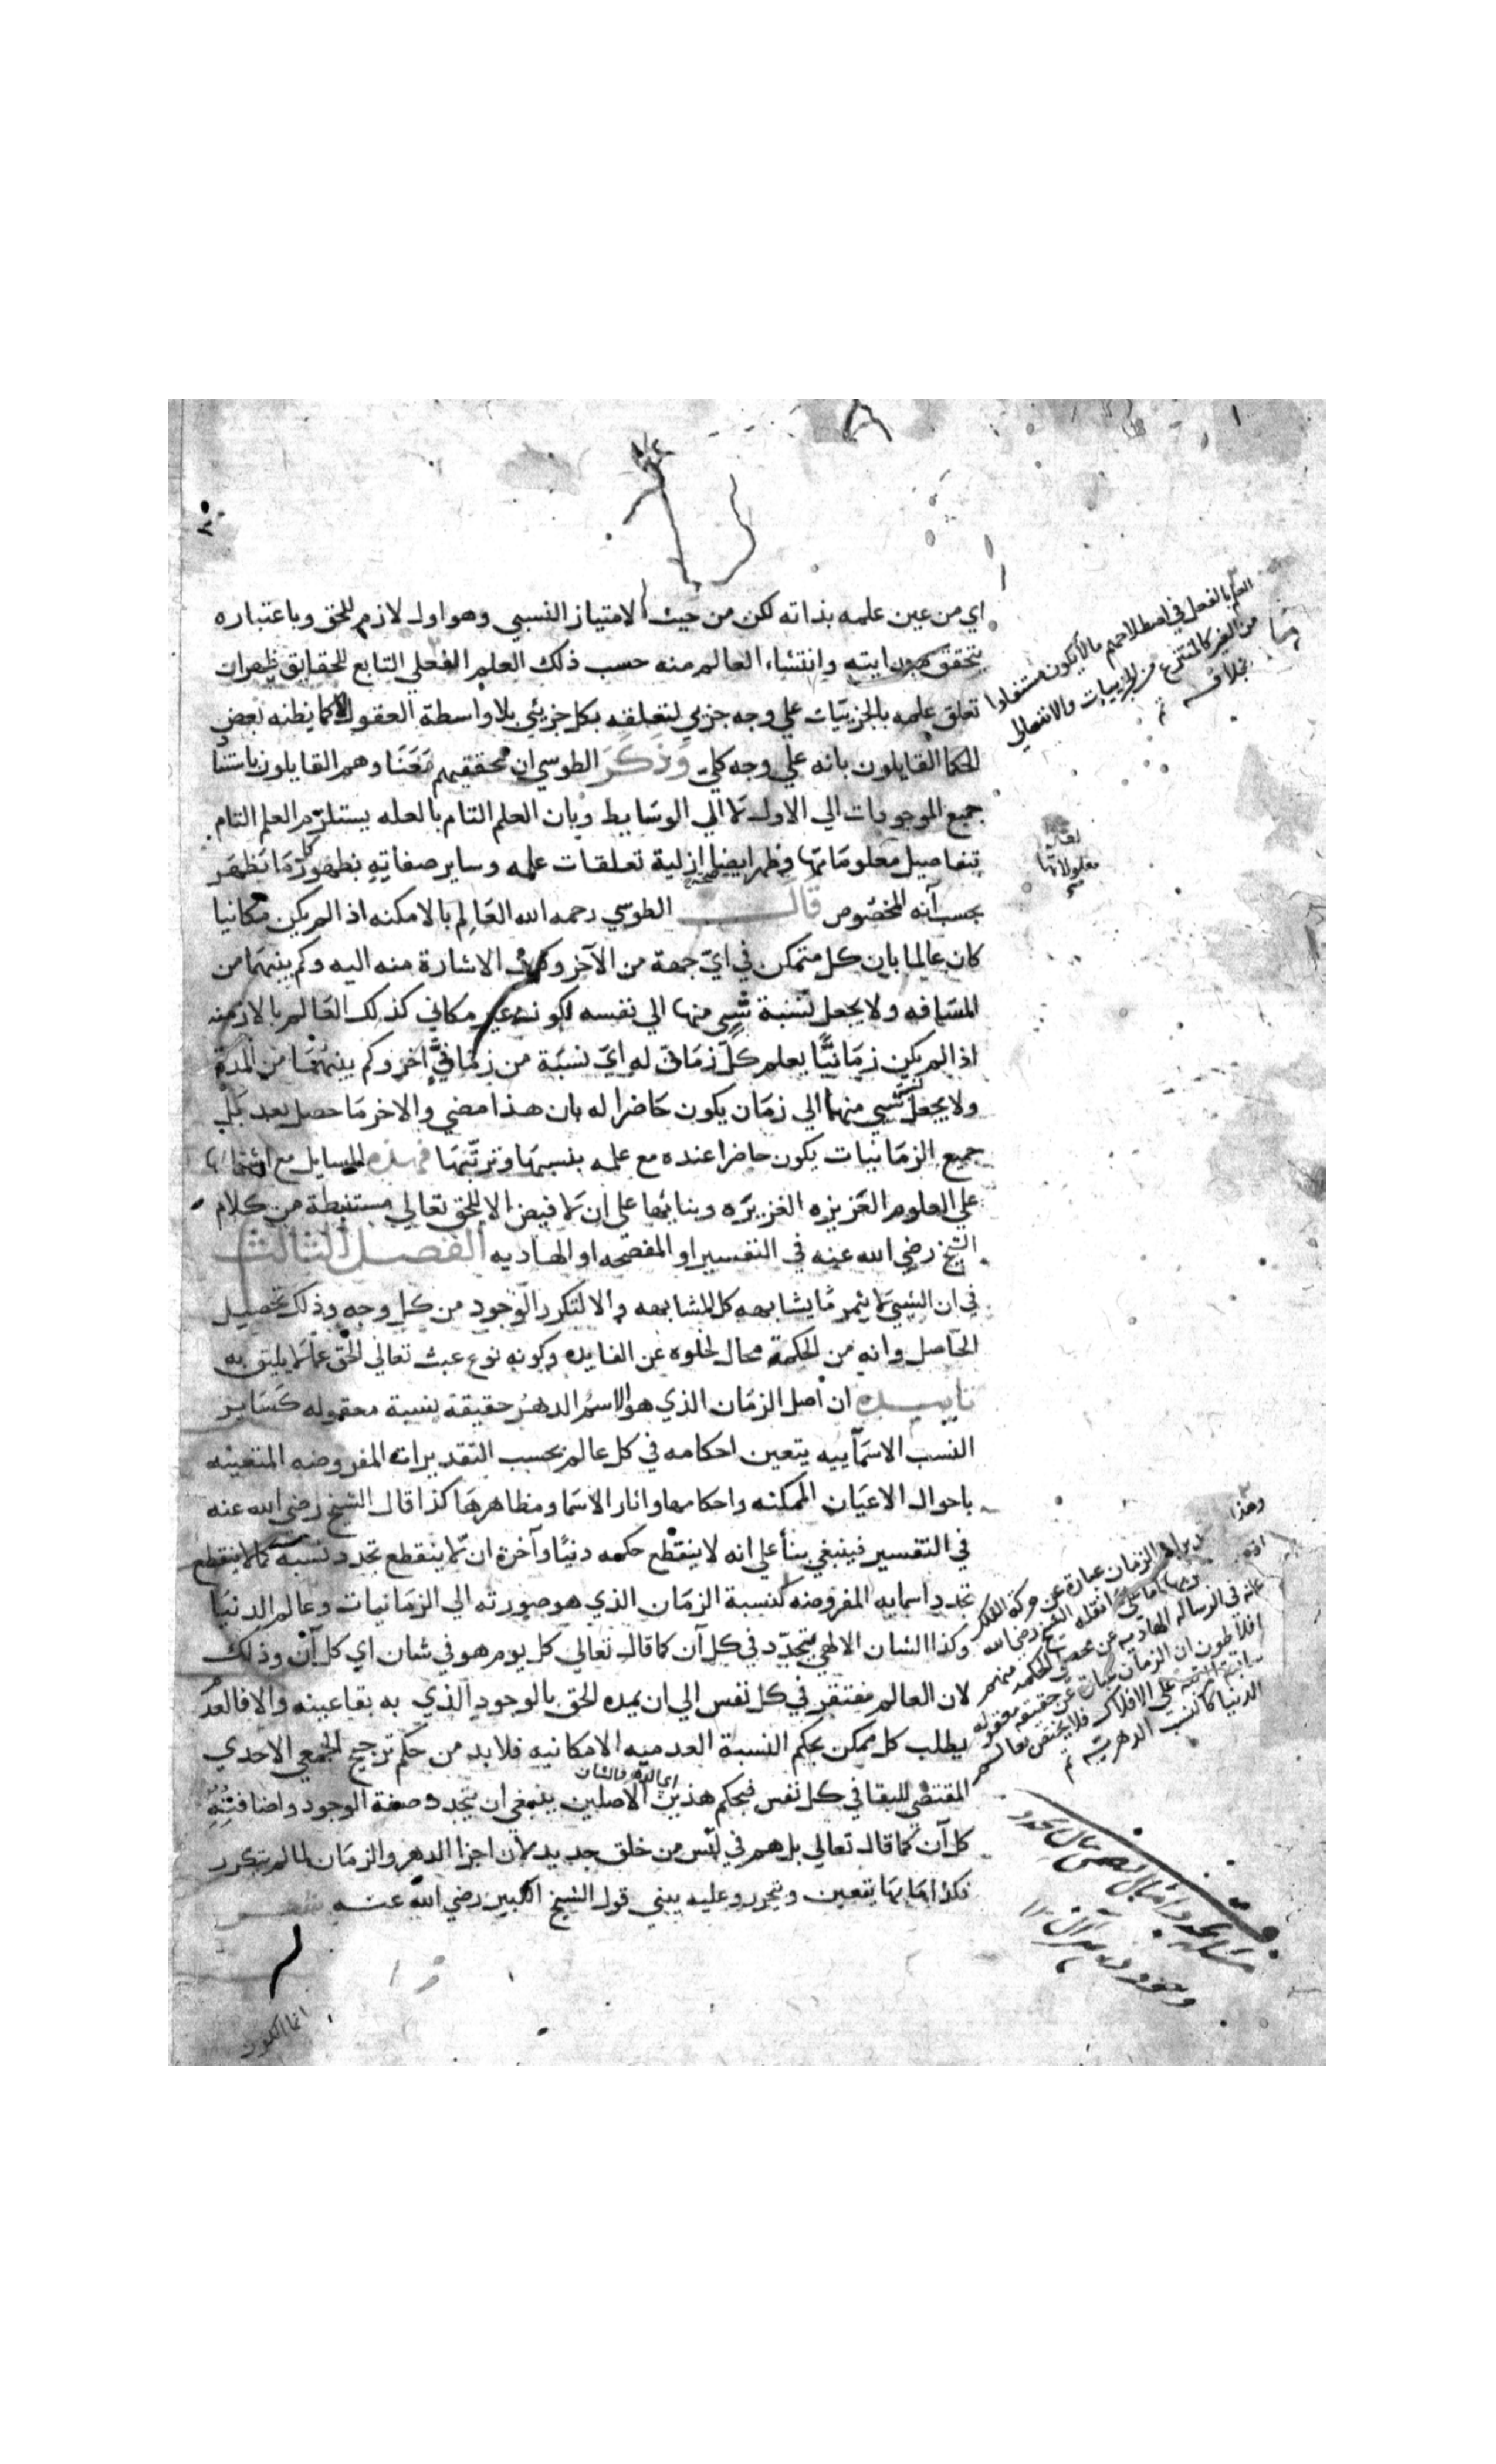 اي من عين علمه بذاته لكن من حيث الامتياز النسبي وهو اول لازم للحق وباعتباره
يتحقق مبدايته وانتشاء العالم منه حسب ذلك العلم الفعلي التابع للحقايق فظهر ان
تعلق علمه بالجزييات علي وجه جزيي لتعلقه بكل جزيئي بلا واسطة العقول لا كما يظنه بعض
الحكما القايلون بانه علي وجه كلي وذكر الطوسي ان محققيهم معنا وهم القايلون باستناد
جميع الموجودات الي الاول لا الي الوسايط وبان العلم التام بالعله يستلزم العلم التام
بتفاصيل معلوماتها وظهر ايضا ازلية تعلقات علمه وساير صفاته بظهور كل ما تظهر
بحسب آنه المخصوص قال الطوسي رحمه الله العالم بالامكنه اذا لم يكن مكانيا
كان عالما بان كل متمكن في اي جهة من الآخر وكيف الاشارة منه اليه وكم بينهما من
المسافه ولا يجعل نسبة شيي منها الي نفسه لكونه غير مكاني كذلك العالم بالازمنه
اذا لم يكن زمانيا يعلم كل زماني له اي نسبة من زماني آخر وكم بينهما من المدة
ولا يجعل شيي منهما الي زمان يكون حاضرا له بان هذا مضي والاخر ما حصل بعد بل
جميع الزمانيات يكون حاضرا عنده مع علمه بنسبها وترتبها فهذه المسايل مع اشتمالها
علي العلوم العزيزه الغزيره وبنائها علي ان لا فيض الا للحق تعالي مستنبطة من كلام
الشيخ رضي الله عنه في التفسير او المفصحه او الهاديه الفصل الثالث
في ان الشيئ لا يثمر ما يشابهه كل المشابهه والا لتكرر الوجود من كل وجه وذلك تحصيل
الحاصل وانه من الحكمة محال لخلوه عن الفايده وكونه نوع عبث تعالي الحق عما لا يليق به
تاييده ان اصل الزمان الذي هو الاسم الدهر حقيقة نسبة معقوله كساير
النسب الاسمآييه يتعين احكامه في كل عالم بحسب التقديرات المفروضه المتعينه
باحوال الاعيان الممكنه واحكامها واثار الاسما ومظاهرها كذا قال الشيخ رضي الله عنه
في التفسير فينبغي بنأ علي انه لا ينقطع حكمه دنيا وآخرة ان لا ينقطع تجدد نسبه كما لا ينقطع
تجدد اسمايه المفروضه كنسبة الزمان الذي هو صورته الي الزمانيات وعالم الدنيا
وكذا الشان الالهي يتجدد في كل آن كما قال تعالي كل يوم هو في شان اي كل آن وذلك
لان العالم مفتقر في كل نفس الي ان يمده الحق بالوجود الذي به بقا عينه والا فالعدم
يطلب كل ممكن بحكم النسبة العدميه الامكانيه فلا بد من حكم ترجيح الجمعي الاحدي
اي الدهر والشان
المقتضي للبقا في كل نفس فبحكم هذين الاصلين ينبغي ان يتجدد صفة الوجود واضافته
كل آن كما قال تعالي بل هم في لبس من خلق جديد لان اجزا الدهر والزمان لما لم يتكرر
فكذا ما بها يتعين ويتجدد وعليه يبني قول الشيخ الكبير رضي الله عنه شعر
انما الكون
العلم بالفعل في اصطلاحهم ما لا يكون مستفادا
من الغير كالمنتزع من الجزييات والانفعالي
بخلافه
معلولاتها
الزمان عبارة عن حركة الفلك
نقله الشيخ رضي الله
عنه في الرسالة الهاديه عن بعض الحكماء منهم
افلاطون ان الزمان عبارة عن حقيقة معقوله
علي الافلاك فلا يختص بعالم
الدنيا كالنسب الدهريه